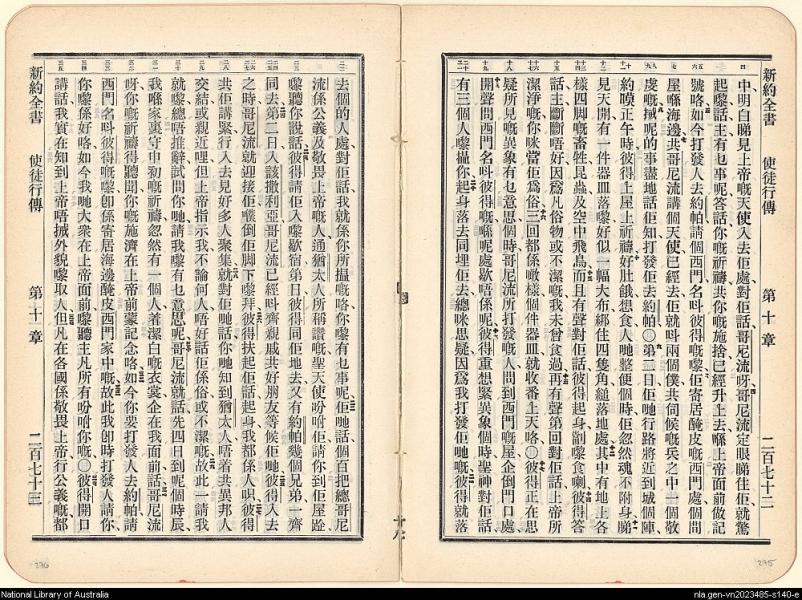 新約全書 使徒行傳 第十章 二百七十二
中明白睇見上帝嘅天使入去佢處對佢話哥尼流呀哥尼流定眼睇住佢就驚
起嚟話主有乜事呢答話你嘅祈禱共你嘅施捨已經升上去喺上帝面前做記
號咯如今打發人去約帕請個西門名呌彼得嘅嚟佢寄居醃皮嘅西門處個間
屋喺海邊共哥尼流講個天使已經去佢就呌兩個僕共伺候嘅兵之中一個敬
虔嘅
呢的事盡地話佢知打發佢去約帕〇第二日佢哋行路將近到城個陣
約嘆正午時彼得上屋上祈禱好肚餓想食人哋整便個時佢忽然魂不附身睇
見天開有一件器皿落嚟好似一幅大布綁住四隻角縋落地處其中有地上各
樣四脚嘅畜牲昆蟲及空中飛鳥而且有聲對佢話彼得起身劏嚟食喇彼得答
話主斷斷唔好因爲凡俗物或不潔嘅我未曾食過再有聲第二回對佢話上帝所
潔淨嘅你咪當佢爲俗三回都係噉樣個件器皿就收番上天咯〇彼得正在思
疑所見嘅異象有乜意思個時哥尼流所打發嘅人問到西門嘅屋企倒門口處
開聲問西門名呌彼得嘅喺呢處歇唔係呢彼得重想緊異象個時聖神對佢話
有三個人嚟搵你起身落去同埋佢去總咪思疑因爲我打發佢哋嘅彼得就落
去個的人處對佢話我就係你所搵嘅咯你嚟有乜事呢佢哋話個百把總哥尼
流係公義及敬畏上帝嘅人通猶太人所稱讚嘅聖天使吩咐佢請你到佢屋跲
嚟聽你說話彼得請佢入嚟歇宿第二日彼得同佢地去又有約帕幾個兄弟一齊
同去第二日入該撒利亞哥尼流已經呌齊親戚共好朋友等候佢哋彼得入去
之時哥尼流就迎接佢嚫倒佢脚下嚟拜彼得扶起佢話起身我都係人呮彼得
共佢講緊行入去見好多人聚集就對佢哋話你哋知到猶太人唔着共異邦人
交結或親近哩但上帝指示我不論何人唔好話佢係俗或不潔嘅故此一請我
就嚟總唔推辭試問你哋請我嚟有乜意思呢哥尼流就話先四日到呢個時辰
我喺家裏守申初嘅祈禱忽然有一個人着潔白嘅衣裳企在我面前話哥尼流
呀你嘅祈禱得聽聞你嘅施濟在上帝前蒙記念咯如今你要打發人去約帕請
西門名呌彼得嘅嚟佢寄居海邊醃皮西門家中嘅故此我卽時打發人請你
你嚟係好咯如今我哋大衆在上帝面前嚟聽主凡所有吩咐你嘅〇彼得開口
講話我實在知到上帝唔搣外貌嚟取人但凡在各國係敬畏上帝行公義嘅都
新約全書 使徒行傳 第十章 二百七十三
276
275
National Library of Australia
nla.gen-vn2023485-s140-e